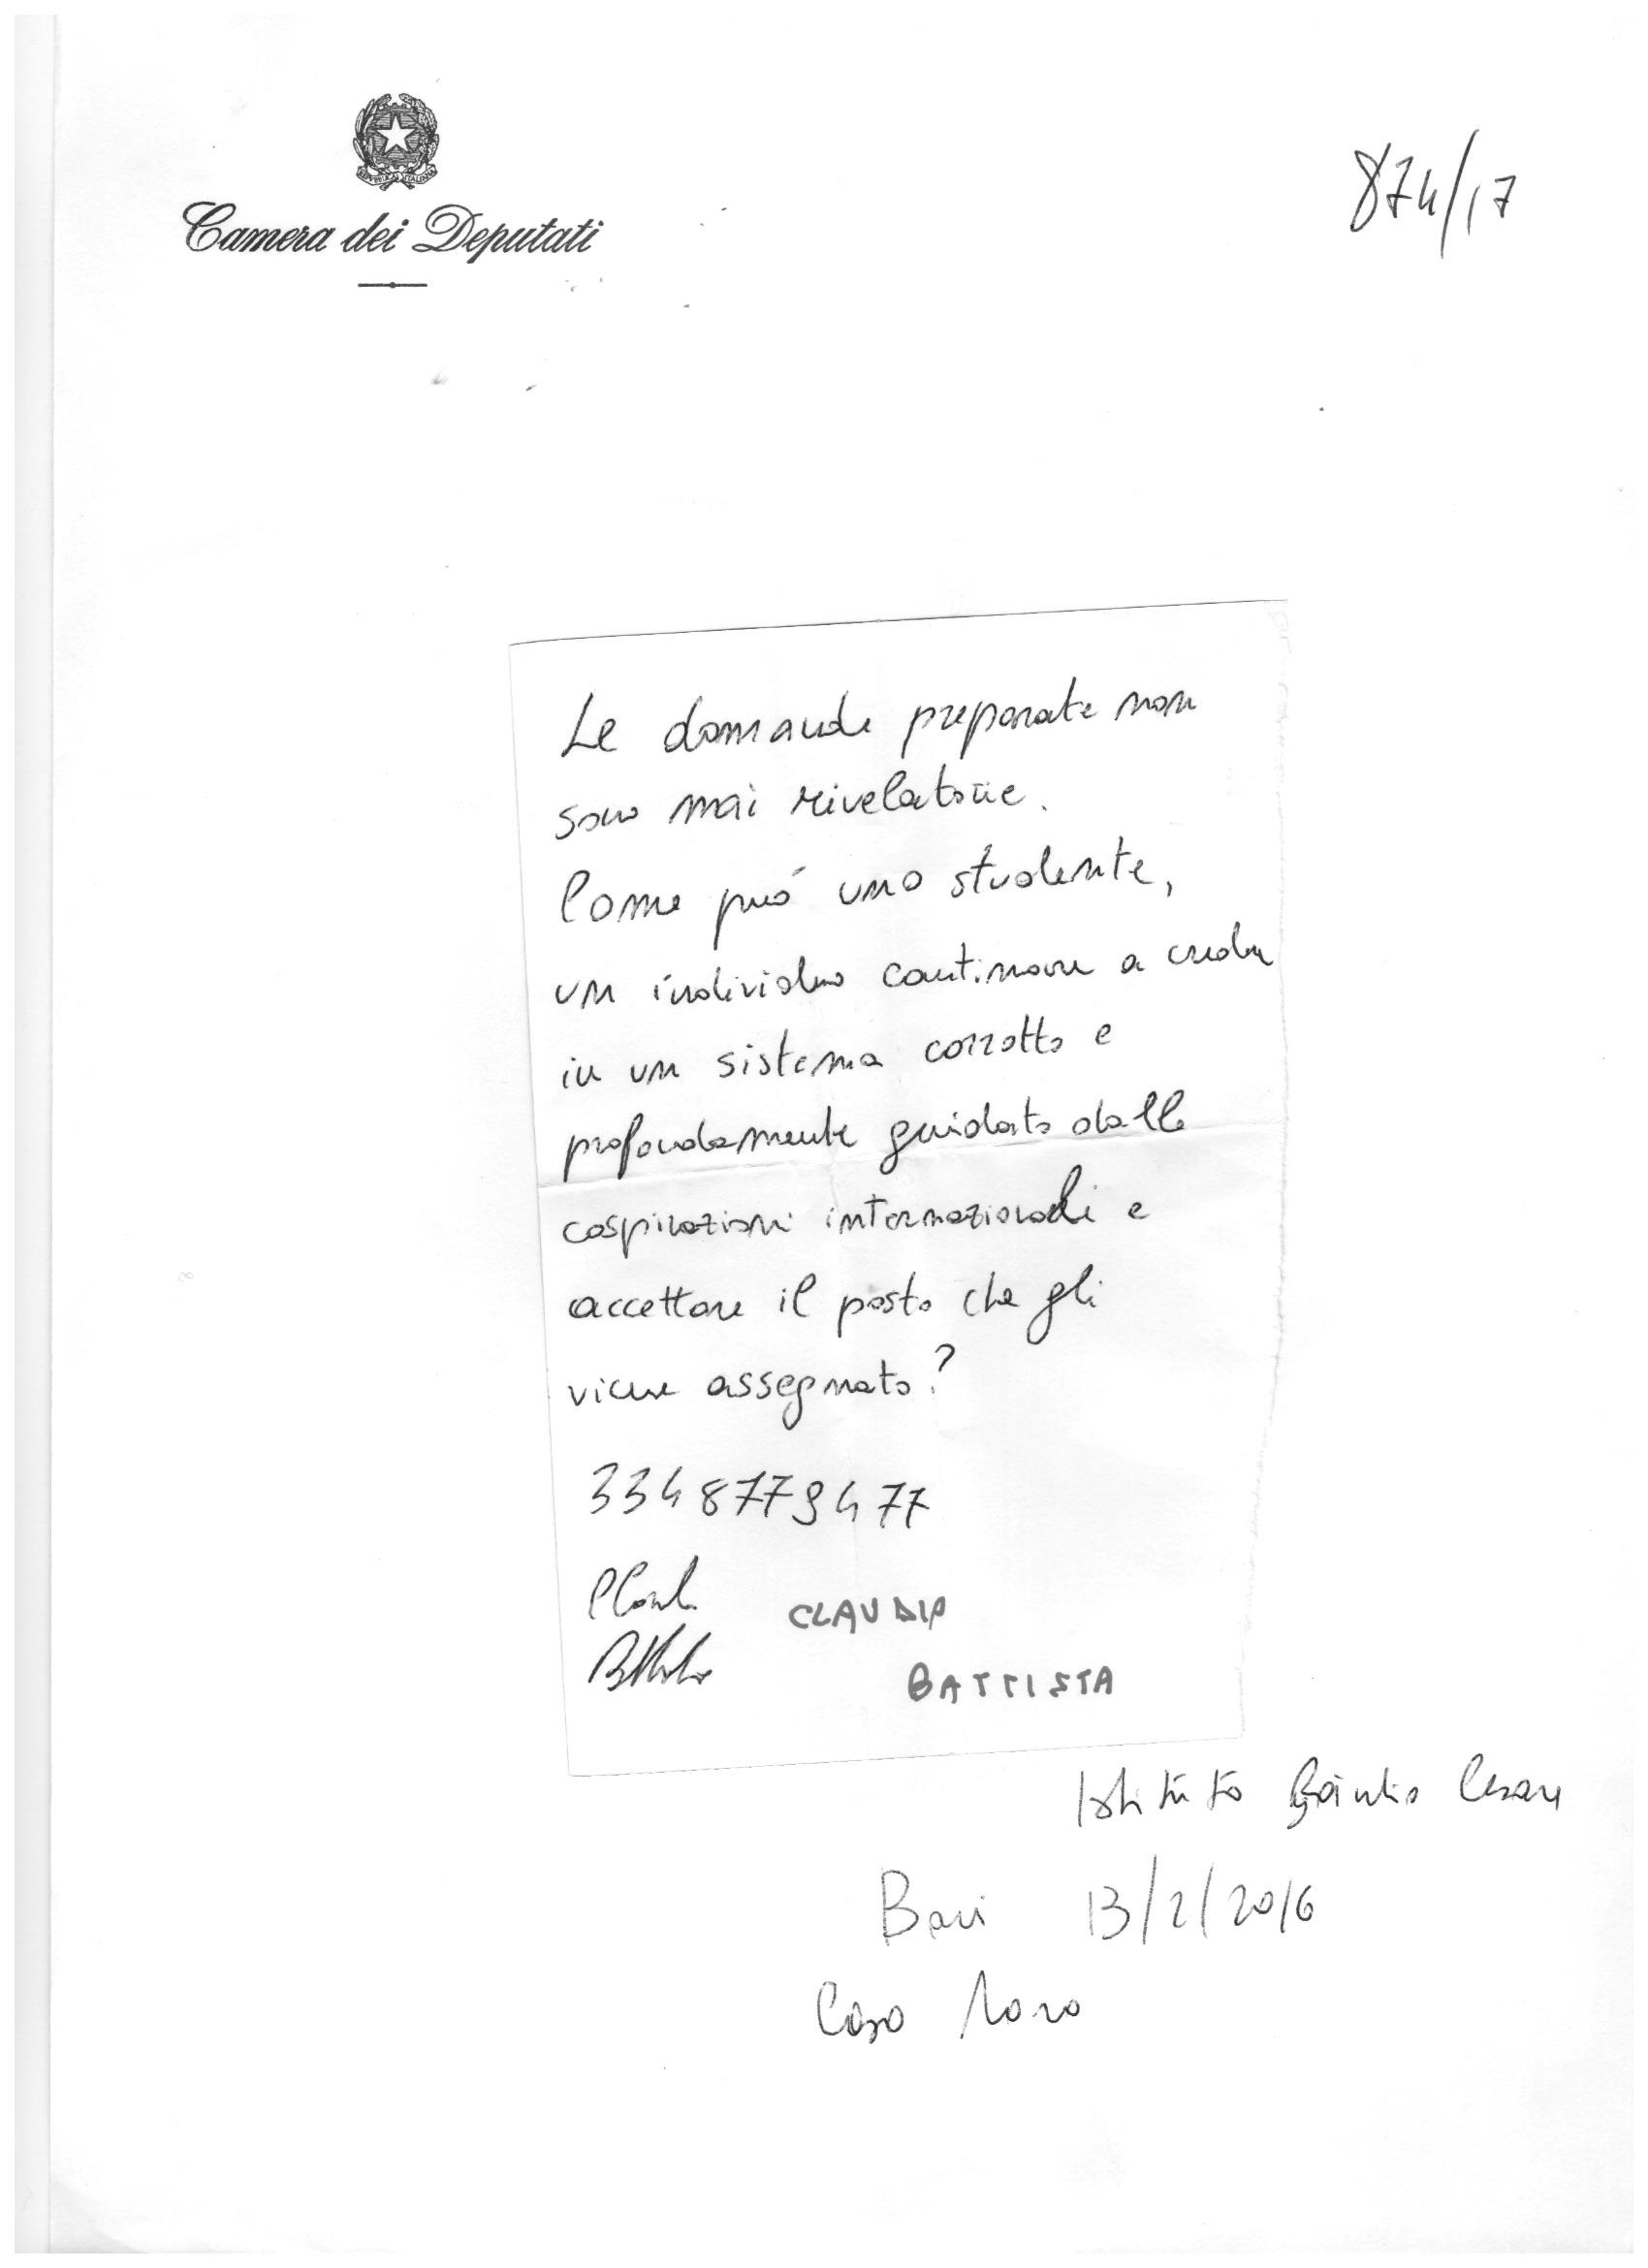 REPVBBLICA ITALIANA
Camera dei Deputati
874/17
Le domande preparate non
sono mai rivelatorie.
Come può uno studente,
un individuo continuare a credere
in un sistema corrotto e
profondamente guidato dalle
cospirazioni internazionali e
accettare il posto che gli
viene assegnato?
3348779477
CLAUDIO
BATTISTA
Istituto Giulio Cesare
Bari 13/2/2016
Caso Moro